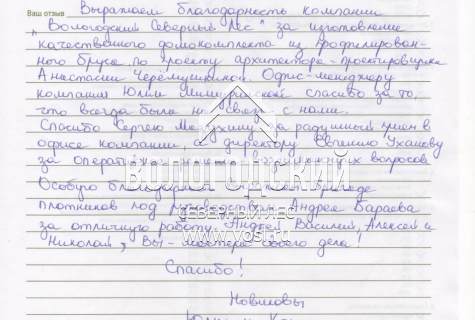 Ваш отзыв
Выражаем благодарность компании
"Вологодский Северный Лес" за изготовление
качественного домокомплекта из профилирован-
ного бруса, по проекту архитектора-проектировщика
Анастасии Черемушкиной. Офис-менеджеру
компании Юлии спасибо за то,
что всегда была на связи с нами.
Спасибо Сергею за радушный прием в
офисе компании, директору Евгению Уханову
за оперативное вопросов
Особую благодарность бригаде
плотников под руководством Андрея Бараева
за отличную работу. Андрей, Василий, Алексей и
Николай, Вы - мастера своего дела!
Спасибо!
Новиковы
ВОЛОГОДСКИЙ
СЕВЕРНЫЙ ЛЕС